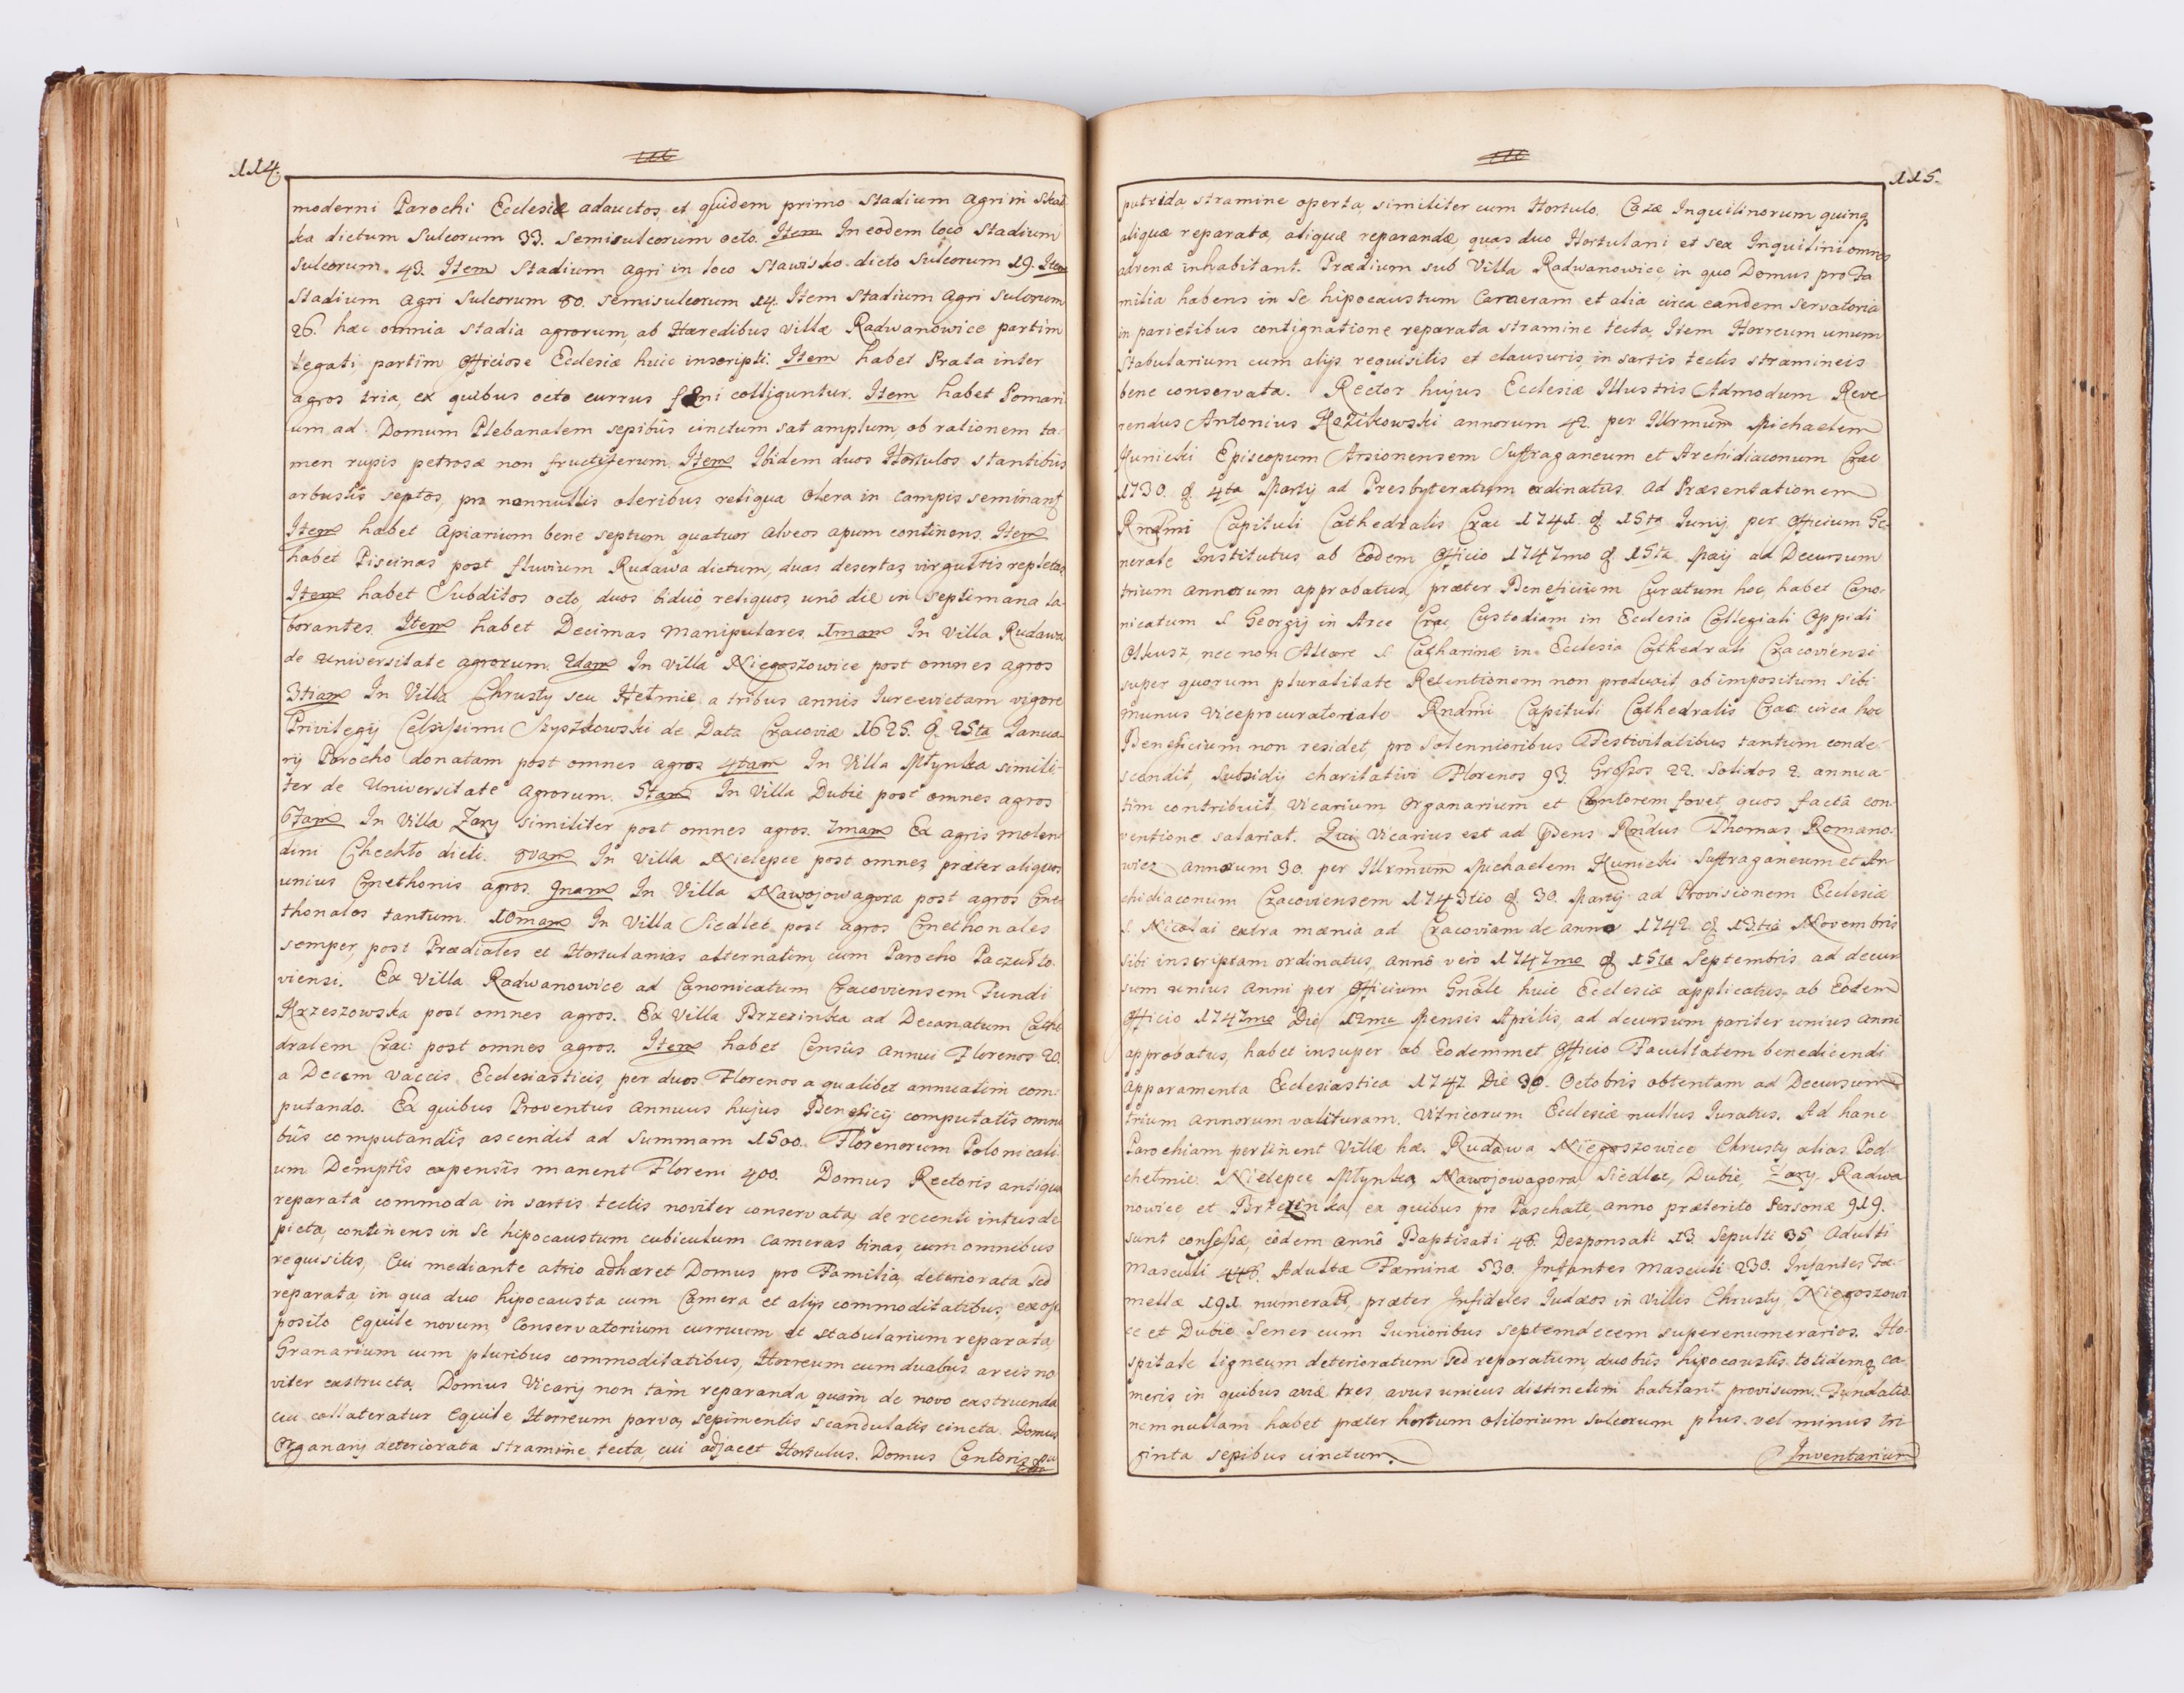 114.
moderni Parochi Ecclesiæ adauctos et quidem primo Stadium agri in Skal
ka dictum Sulcorum 33. Semisulcorum octo. Item In eodem loco Stadium
Sulcorum. 43. Item Stadium agri in loco Stawisko dicto Sulcorum 19. Item
Stadium agri Sulcorum 80. Semisulcorum 14. Item Stadium agri Sulcorum
26. hæc omnia stadia agrorum, ab Hæredibus Villæ Radwanowice partim
legati, partim officiose Ecclesiæ huic inscripti. Item habet Prata inter
agros tria, ex quibus octo currus fæni colliguntur. Item habet Pomari
um ad Domum Plebanalem sepibûs cinctum sat amplum, ob rationem ta-
men rupis petrosæ non fructiferum. Item Ibidem duos Hortulos stantibûs
arbustis septos, pro nonnullis oleribus reliqua olera in campis seminant
Item habet Apiarium bene septum quatuor alveos apum continens. Item
habet Piscinas post fluvium Rudawa dictum, duas desertas virgultis repletas
Item habet Subditos octo, duos biduô reliquos unô die in Septimana la-
borantes. Item habet Decimas Manipulares. Imam In Villa Rudawa
de Universitate agrorum. 2dam In Villa Niegoszowice post omnes agros
3tiam In Villa Chrusty seu Hełmie a tribus annis Iure evictam vigore
Privilegij Celsissimi Szyszkowski de Data Cracoviæ 1625. d. 25ta Janua-
rij Parocho donatam post omnes agros 4tam In Villa Młynka simili-
ter de Universitate Agrorum. 5tam In Villa Dubie post omnes agros
6tam In Villa Zary similiter post omnes agros. 7mam Ex agris molen
dini Chechło dicti. 8vam In Villa Nielepce post omnes, præter aliquos
unius Cmethonis agros. 9nam In Villa Nawojowagora post agros Cme-
thonales tantum. 10mam In Villa Siedlet post agros Cmethonales
semper, post Prædiales et Hortulanias alternatim, cum Parocho Paczułto-
viensi. Ex Villa Radwanowice ad Canonicatum Cracoviensem Fundi
Krzeszowska post omnes agros. Ex Villa Brzezinka ad Decanatum Cathe
dralem Crac: post omnes agros. Item habet Censûs annui Florenos 20.
a Decem vaccis Ecclesiasticis, per duos Florenos a qualibet annuatim com-
putando. Ex quibus Proventus annuus hujus Beneficij computatîs omni
bûs computandîs ascendit ad Summam 1500. Florenorum Polonicali
um Demptîs expensîs manent Floreni 400. Domus Rectoris antiqua
reparata commoda in sartis tectis noviter conservata, de recenti intus de
picta, continens in se hipocaustum cubiculum cameras binas, cum omnibus
requisitis, Cui mediante atrio adhæret Domus pro Familia, deteriorata sed
reparata, in qua duo hipocausta cum Camera et alijs commoditatibus, ex op-
posito Equile novum, Conservatorium curruum et stabularium reparata,
Granarium cum pluribus commoditatibus, Horreum cum duabus areis no
viter exstructa. Domus Vicarij non tam reparanda quam de novo exstruenda
cui collateratur Equile Horreum parva, sepimentis scandulatis cincta. Domus
Organarij deteriorata stramine tecta, cui adjacet Hortulus. Domus Cantoris pu
115.
putrida stramine operta, similiter cum Hortulo. Casæ Inquilinorum quinq
aliquæ reparatæ, aliquæ reparandæ quas duo Hortulani et sex Inquilini omnes
advenæ inhabitant. Prædium sub Villa Radwanowice, in quo Domus pro Fa
milia habens in se hipocaustum Cameram et alia circa eandem servatoria
in parietibus contignatione reparata stramine tecta, Item Horreum unum
Stabularium cum alijs requisitis et clausuris, in sartis tectis stramineis
bene conservata. Rector hujus Ecclesiæ Illustris Admodum Reve-
rendus Antonius Kozikowski annorum 42. per Illrmum Michaelem
Kunicki Episcopum Arsionensem Suffraganeum et Archidiaconum Crac
1730. d. 4ta Martij ad Presbyteratum ordinatus. Ad Præsentationem
Rndmi Capituli Cathedralis Crac 1741. d. 15ta Iunij per Officium Ge-
nerale Institutus, ab Eodem Officio 1747mo d. 15ta Maij ad Decursum
trium annorum approbatus, præter Beneficium Curatum hoc, habet Cano-
nicatum S. Georgij in Arce Crac, Custodiam in Ecclesia Collegiali Oppidi
Olkusz, nec non Altare S. Catharinæ in Ecclesia Cathedrali Cracoviensi
super quorum pluralitate Retentionem non produxit, ob impositum sibi
munus Viceprocuratoriale Rndmi Capituli Cathedralis Crac: circa hoc
Beneficium non residet, pro Solennioribus Festivitatibus tantum conde-
scendit, Subsidij charitativi Florenos 93. Grossos 22. Solidos 2. annua-
tim contribuit. Vicarium Organarium et Cantorem fovet, quos factâ con-
ventione salariat. Qui Vicarius est ad præns Rndus Thomas Romano-
wicz annorum 30. per Illrmum Michaelem Kunicki Suffraganeum et Ar-
chidiaconum Cracoviensem 1743tio d. 30. Martij ad Provisionem Ecclesiæ
S. Nicolai extra mænia ad Cracoviam de anno 1742. d. 13.tia Novembris
sibi inscriptam ordinatus, annô verò 1747mo d 15ta Septembris ad decur
sum unius Anni per Officium Gnāle huic Ecclesiæ applicatus, ab Eodem
Officio 1747mo Die 12ma Mensis Aprilis, ad decursum pariter unius anni
approbatus, habet insuper ab Eodemmet Officio Facultatem benedicendi
Apparamenta Ecclesiastica 1747 Die 30. Octobris obtentam ad Decursum
trium annorum valituram. Vitricorum Ecclesiæ nullus Iuratus. Ad hanc
Parochiam pertinent Villæ hæ. Rudawa Niegoszowice Chrusty alias Pod-
chełmie Nielepce Młynka, Nawojowagora Siedlec, Dubie, Zary, Radwa
nowice et Brzezinka, ex quibus pro Paschate, anno præterito Personæ 919.
sunt confessæ, eôdem annô Baptisati 48. Desponsati 13. Sepulti 35 Adulti
Masculi 448. Adultæ Fæminæ 530. Infantes Masculi 230. Infantes Fæ-
mellæ 191. numerati, præter Infideles Iudæos in Villis Chrusty, Niegoszowi
ce et Dubie Senes cum Iunioribus septemdecem superenumerarios. Ho-
spitale ligneum deterioratum sed reparatum, duobûs hipocaustîs totidemq ca-
meris in quibus aviæ tres avus unicus distinctim habitant provisum. Fundatio-
nem nullam habet præter hortum olitorium sulcorum plus vel minus tri
ginta sepibus cinctum.
Inventarium